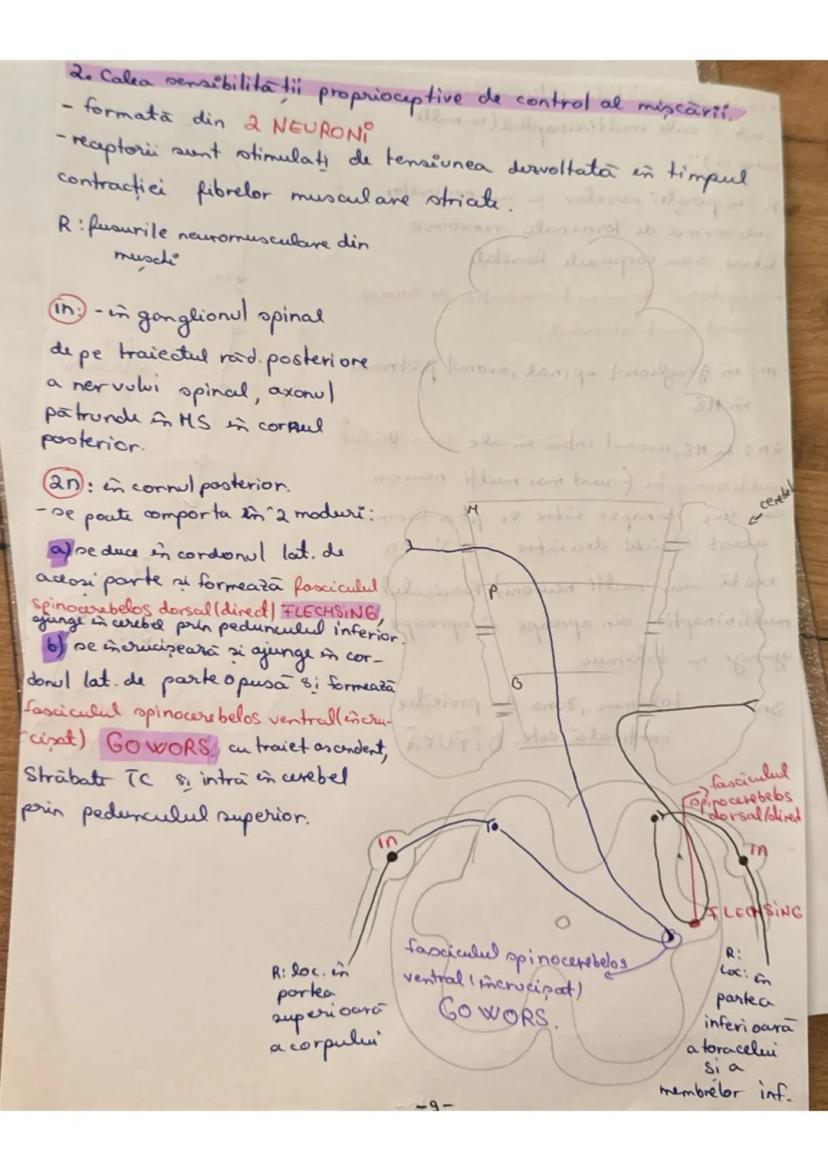 2. Calea sensibilității proprioceptive de control al mișcării.
- formată din 2 NEURONI
- receptorii sunt stimulați de tensiunea dezvoltată în timpul
contracției fibrelor musculare striate.
R: fusurile neuromusculare din
mușchi
1n: - în ganglionul spinal
de pe traiectul răd. posterioare
a nervului spinal, axonul
pătrunde în MS în cornul
posterior.
2n: în cornul posterior.
- se poate comporta în 2 moduri:
a) se duce în cordonul lat. de
aceași parte și formează fasciculul
spinocerebelos dorsal (direct) FLECHSING,
ajunge în cerebel prin pedunculul inferior.
b) se încrucișează și ajunge în cor-
donul lat. de parte opusă și formează
fasciculul spinocerebelos ventral (încru-
cișat) GOWORS, cu traiet ascendent,
străbate TC și intră în cerebel
prin pedunculul superior.
cerebel
M
P
B
fasciculul
spinocerebelos
dorsal/direct
FLECHSING
1n
1n
fasciculul spinocerebelos
ventral (încrucișat)
GOWORS.
R: loc. în
partea
superioară
a corpului
R:
Loc: în
partea
inferioară
a toracelui
și a
membrelor inf.
-9-